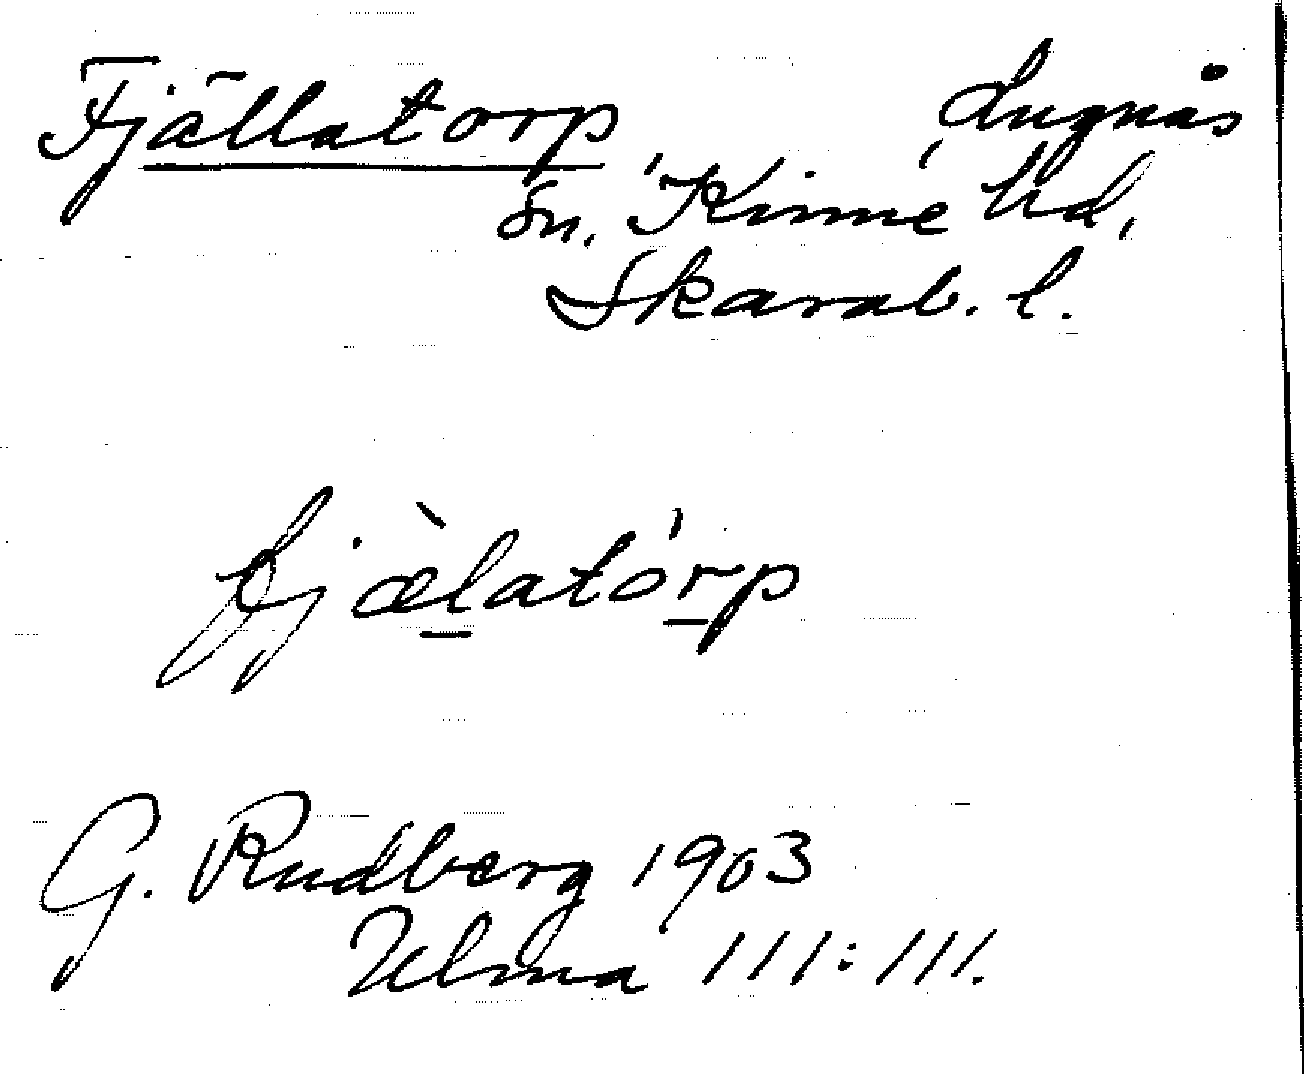 Fjällatorp Lugnås
sn. Kinne hd,
Skarab. l.
fjæ̀latórp
G. Rudberg 1903
Ulma 111:111.